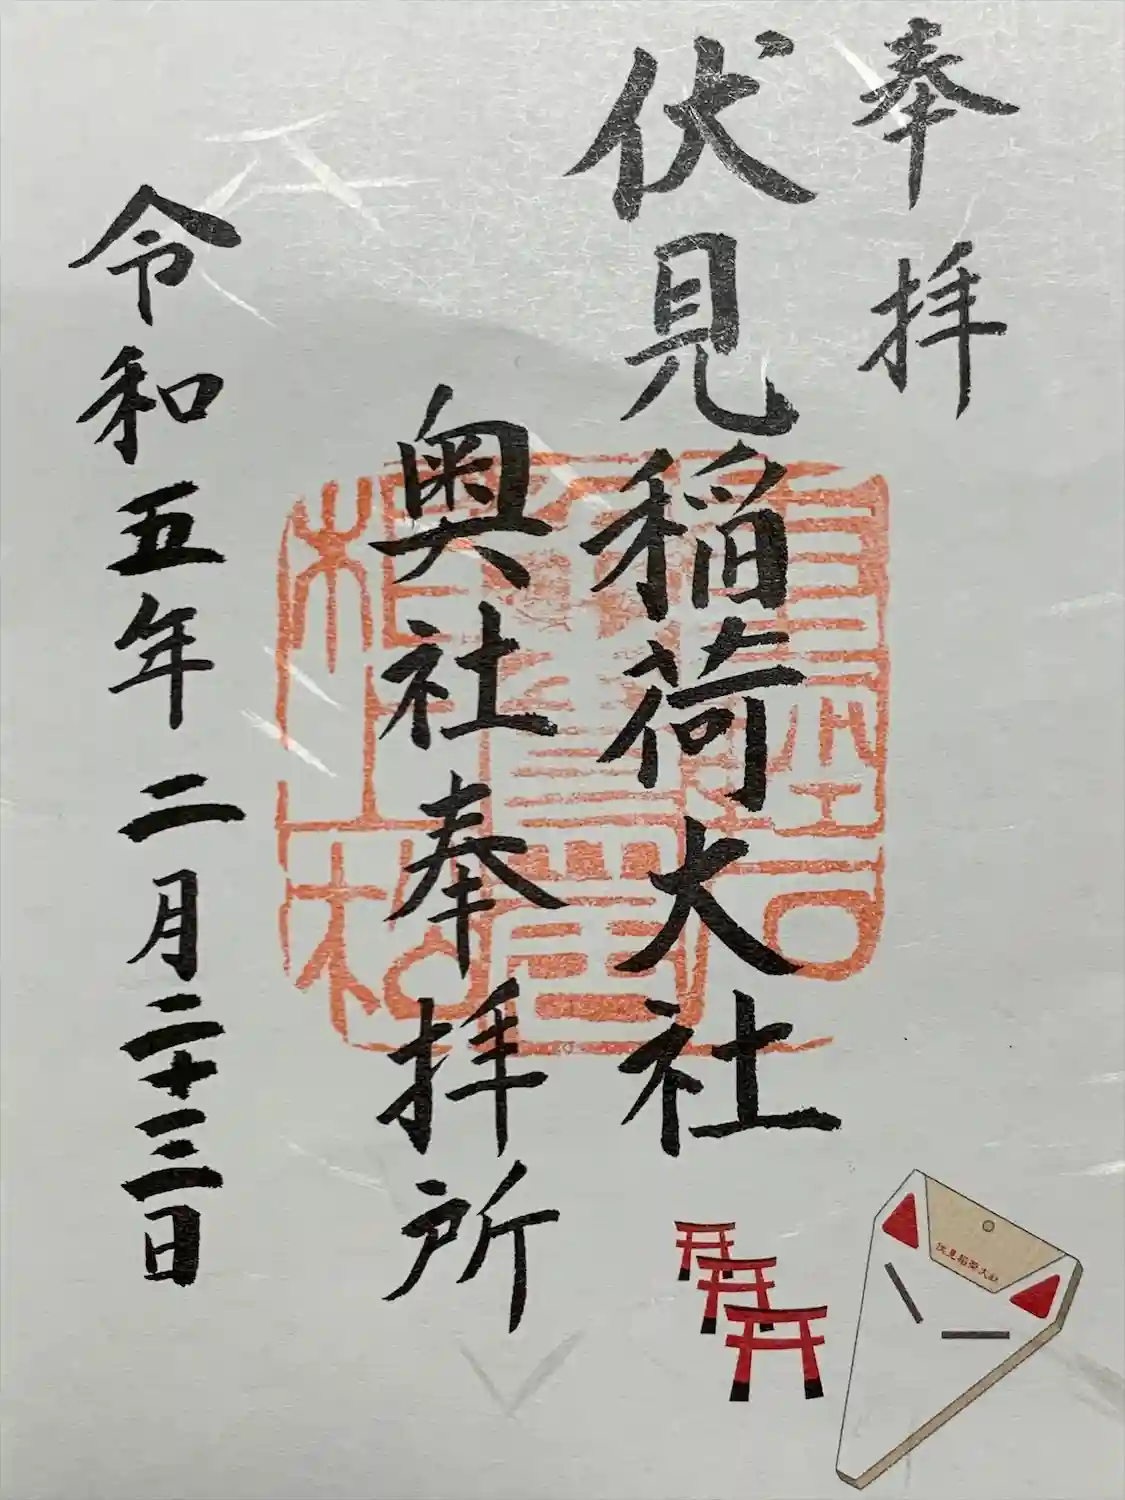 奉拝
伏見稲荷大社
奥社奉拝所
令和五年二月二十三日
伏見稲荷大社